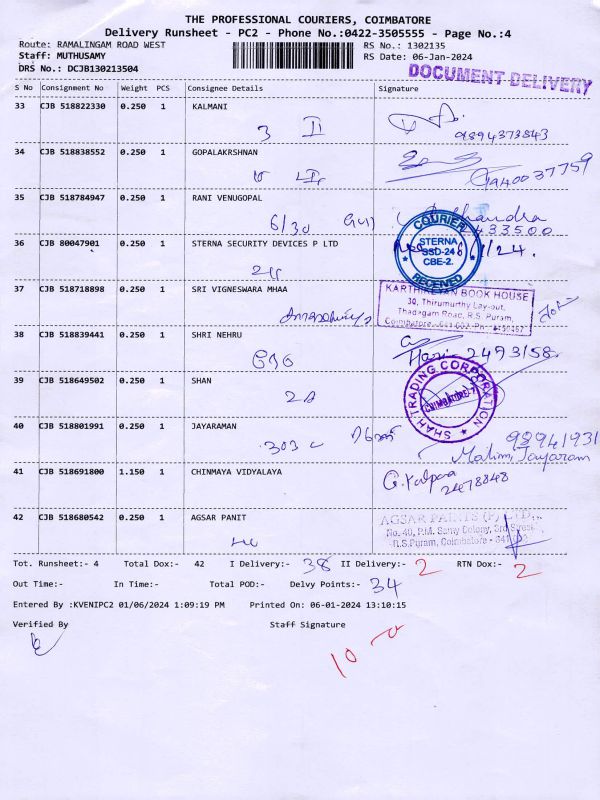 THE PROFESSIONAL COURIERS, COIMBATORE
Delivery Runsheet - PC2 - Phone No.:0422-3505555 - Page No.:4
Route: RAMALINGAM ROAD WEST RS No.: 1302135
Staff: MUTHUSAMY RS Date: 06-Jan-2024
DRS No.: DCJB130213504 DOCUMENT DELIVERY
S No Consignment No Weight PCS Consignee Details Signature
33 CJB 518822330 0.250 1 KALMANI
3 II 9894373543
34 CJB 518838552 0.250 1 GOPALAKRSHNAN
35 CJB 518784947 0.250 1 RANI VENUGOPAL
6/30
433500
36 CJB 80047901 0.250 1 STERNA SECURITY DEVICES P LTD
COURIER
STERNA
SSD-24
CBE-2.
RECEIVED
37 CJB 518718898 0.250 1 SRI VIGNESWARA MHAA
KARTHIKEYAN BOOK HOUSE
30, Thirumurthy Lay-out,
Thadagam Road, R.S. Puram,
Coimbatore - 641 002
38 CJB 518839441 0.250 1 SHRI NEHRU
Hari 2493158
39 CJB 518649502 0.250 1 SHAN
2A
SHAH TRADING CORPORATION
COIMBATORE-2
40 CJB 518801991 0.250 1 JAYARAMAN
303 98941931
Malini Jayaram
41 CJB 518691800 1.150 1 CHINMAYA VIDYALAYA
G. Kalpana
2478848
42 CJB 518680542 0.250 1 AGSAR PANIT
AGSAR PAINTS (P) LTD.,
No. 40, P.M. Samy Colony, 3rd Street,
R.S.Puram, Coimbatore - 641
Tot. Runsheet:- 4 Total Dox:- 42 I Delivery:- 38 II Delivery:- 2 RTN Dox:- 2
Out Time:- In Time:- Total POD:- Delvy Points:- 34
Entered By :KVENIPC2 01/06/2024 1:09:19 PM Printed On: 06-01-2024 13:10:15
Verified By Staff Signature
10